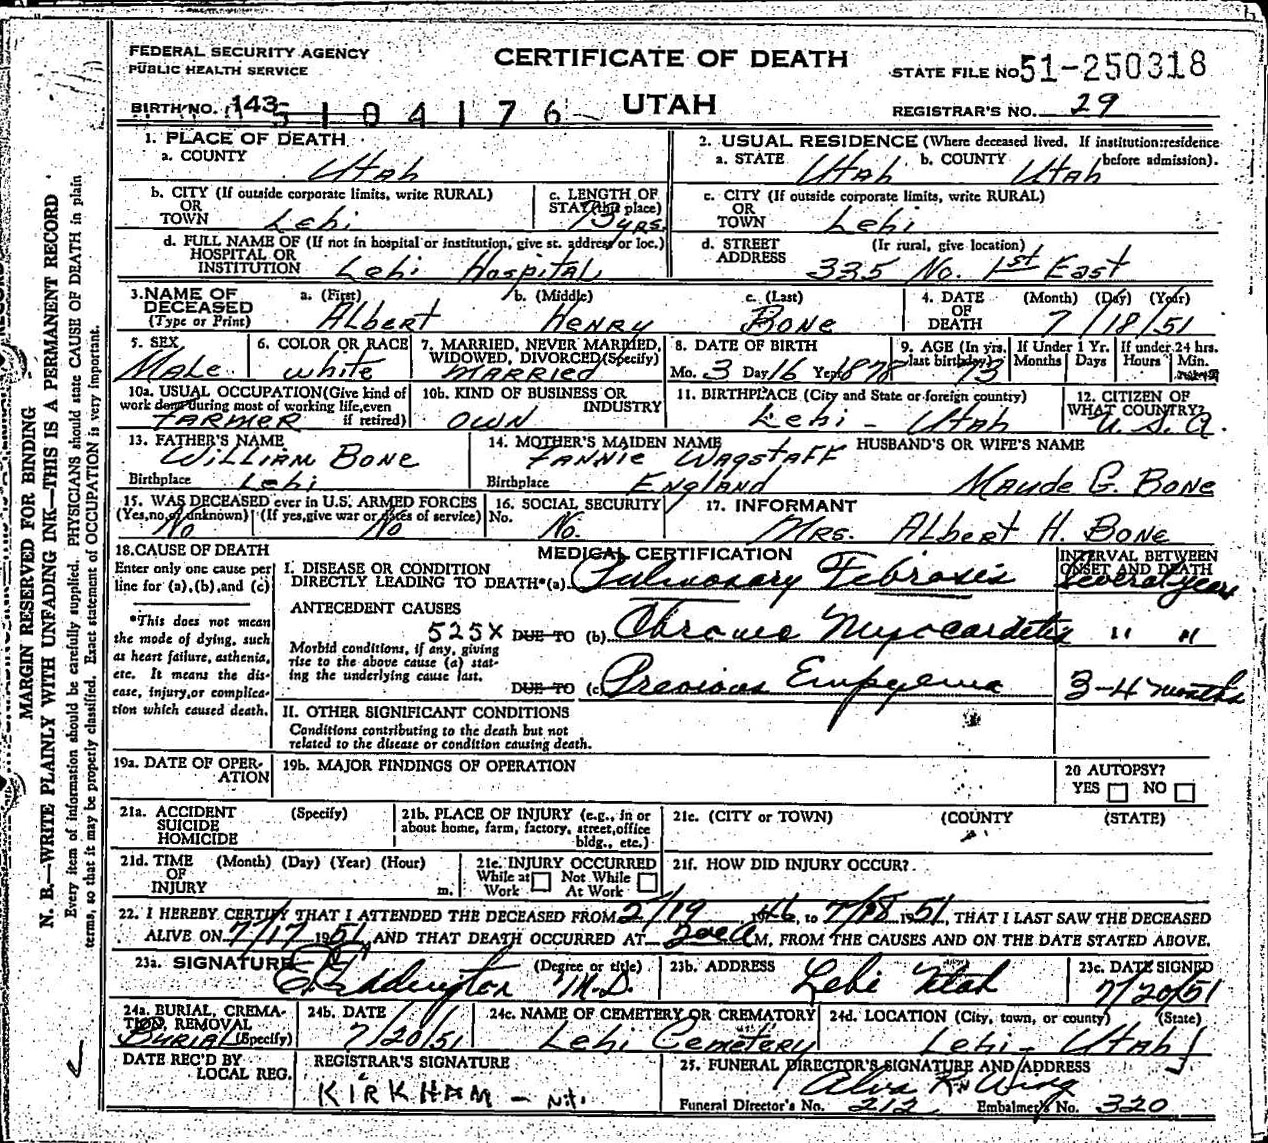 FEDERAL SECURITY AGENCY
PUBLIC HEALTH SERVICE
CERTIFICATE OF DEATH
STATE FILE NO. 51-250318
BIRTH NO. 143 5104176
UTAH
REGISTRAR'S NO. 29
1. PLACE OF DEATH
a. COUNTY Utah
2. USUAL RESIDENCE (Where deceased lived. If institution: residence before admission).
a. STATE Utah b. COUNTY Utah
b. CITY (If outside corporate limits, write RURAL)
OR
TOWN Lehi
c. LENGTH OF
STAY (this place)
73 yrs.
c. CITY (If outside corporate limits, write RURAL)
OR
TOWN Lehi
d. FULL NAME OF (If not in hospital or institution, give st. address or loc.)
HOSPITAL OR
INSTITUTION Lehi Hospital
d. STREET (If rural, give location)
ADDRESS 335 No. 1st East
3. NAME OF
DECEASED
(Type or Print)
a. (First) Albert
b. (Middle) Henry
c. (Last) Bone
4. DATE
OF
DEATH
(Month) (Day) (Year)
7/18/51
5. SEX
Male
6. COLOR OR RACE
white
7. MARRIED, NEVER MARRIED,
WIDOWED, DIVORCED (Specify)
MARRIED
8. DATE OF BIRTH
Mo. 3 Day 16 Year 1878
9. AGE (In yrs.
last birthday) 73
If Under 1 Yr.
Months Days
If under 24 hrs.
Hours Min.
10a. USUAL OCCUPATION (Give kind of
work done during most of working life, even
if retired)
FARMER
10b. KIND OF BUSINESS OR
INDUSTRY
OWN
11. BIRTHPLACE (City and State or foreign country)
Lehi - Utah
12. CITIZEN OF
WHAT COUNTRY?
U.S.A.
13. FATHER'S NAME
William Bone
Birthplace Lehi
14. MOTHER'S MAIDEN NAME
Fannie Wagstaff
Birthplace England
HUSBAND'S OR WIFE'S NAME
Maude G. Bone
15. WAS DECEASED ever in U.S. ARMED FORCES
(Yes, no, or unknown) (If yes, give war or dates of service)
No No
16. SOCIAL SECURITY
No. No.
17. INFORMANT
Mrs. Albert H. Bone
18. CAUSE OF DEATH
Enter only one cause per
line for (a), (b), and (c)
*This does not mean
the mode of dying, such
as heart failure, asthenia,
etc. It means the dis-
ease, injury, or complica-
tion which caused death.
MEDICAL CERTIFICATION
INTERVAL BETWEEN
ONSET AND DEATH
I. DISEASE OR CONDITION
DIRECTLY LEADING TO DEATH* (a) Pulmonary Febrosis Several years
ANTECEDENT CAUSES
525X DUE TO (b) Chronic Myocardetis " "
Morbid conditions, if any, giving
rise to the above cause (a) stat-
ing the underlying cause last.
DUE TO (c) Previous Empyema 3-4 months
II. OTHER SIGNIFICANT CONDITIONS
Conditions contributing to the death but not
related to the disease or condition causing death.
19a. DATE OF OPER-
ATION
19b. MAJOR FINDINGS OF OPERATION
20 AUTOPSY?
YES NO
21a. ACCIDENT (Specify)
SUICIDE
HOMICIDE
21b. PLACE OF INJURY (e.g., in or
about home, farm, factory, street, office
bldg., etc.)
21c. (CITY or TOWN) (COUNTY) (STATE)
21d. TIME (Month) (Day) (Year) (Hour)
OF
INJURY m.
21e. INJURY OCCURRED
While at Work Not While At Work
21f. HOW DID INJURY OCCUR?
22. I HEREBY CERTIFY THAT I ATTENDED THE DECEASED FROM 2/19 1946, to 7/18 1951, THAT I LAST SAW THE DECEASED
ALIVE ON 7/17 1951, AND THAT DEATH OCCURRED AT M, FROM THE CAUSES AND ON THE DATE STATED ABOVE.
23a. SIGNATURE (Degree or title)
Eddington M.D.
23b. ADDRESS
Lehi Utah
23c. DATE SIGNED
7/20/51
24a. BURIAL, CREMA-
TION, REMOVAL
(Specify)
Burial
24b. DATE
7/20/51
24c. NAME OF CEMETERY OR CREMATORY
Lehi Cemetery
24d. LOCATION (City, town, or county) (State)
Lehi - Utah
DATE REC'D BY
LOCAL REG.
REGISTRAR'S SIGNATURE
KIRKHAM
25. FUNERAL DIRECTOR'S SIGNATURE AND ADDRESS
Alva R. Wing
Funeral Director's No. 212 Embalmer's No. 320
MARGIN RESERVED FOR BINDING
N. B.—WRITE PLAINLY WITH UNFADING INK—THIS IS A PERMANENT RECORD
Every item of information should be carefully supplied. PHYSICIANS should state CAUSE OF DEATH in plain
terms, so that it may be properly classified. Exact statement of OCCUPATION is very important.